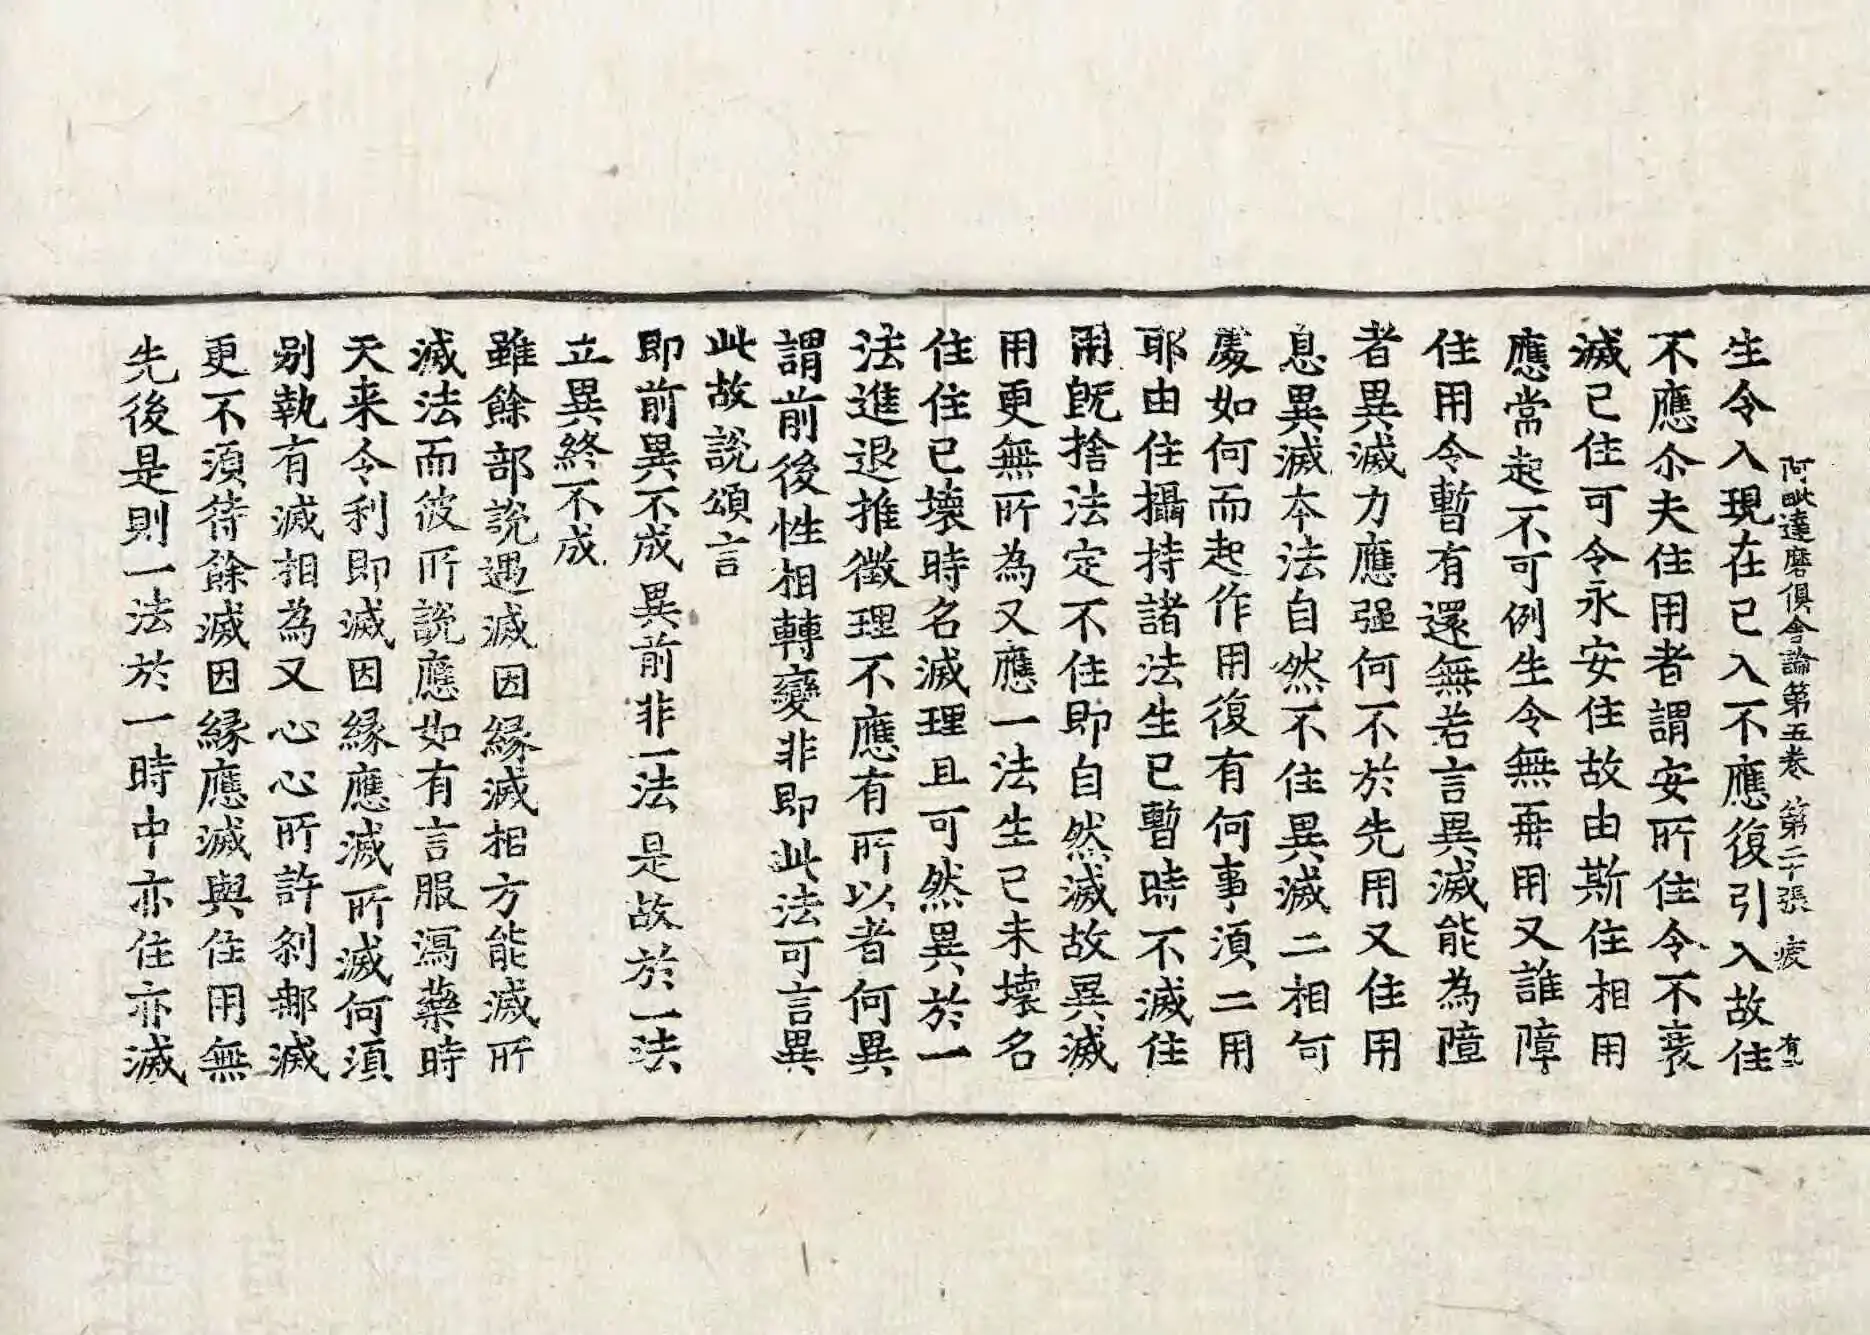 阿毗達磨俱舍論第五卷 第二十張 疲
生令入現在已入不應復引入故住
不應尒夫住用者謂安所住令不衰
滅已住可令永安住故由斯住相用
應常起不可例生令無再用又誰障
住用令暫有還無若言異滅能為障
者異滅力應強何不於先用又住用
息異滅本法自然不住異滅二相何
處如何而起作用復有何事須二用
耶由住攝持諸法生已暫時不滅住
用旣捨法定不住即自然滅故異滅
用更無所為又應一法生已未壞名
住住已壞時名滅理且可然異於一
法進退推徵理不應有所以者何異
謂前後性相轉變非即此法可言異
此故說頌言
即前異不成 異前非一法 是故於一法
立異終不成
雖餘部說遇滅因緣滅相方能滅所
滅法而彼所說應如有言服瀉藥時
天来令利即滅因緣應滅所滅何須
别執有滅相為又心心所許剎那滅
更不須待餘滅因緣應滅與住用無
先後是則一法於一時中亦住亦滅